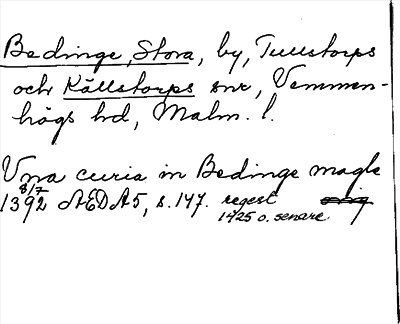 Bedinge, Stora, by, Tullstorps
och Källstorps snr, Vemmen-
högs hd, Malm. l.
Vna curia in Bedinge magle
8/7
1392 AEDA5, s. 147. regest orig
1425 o. senare